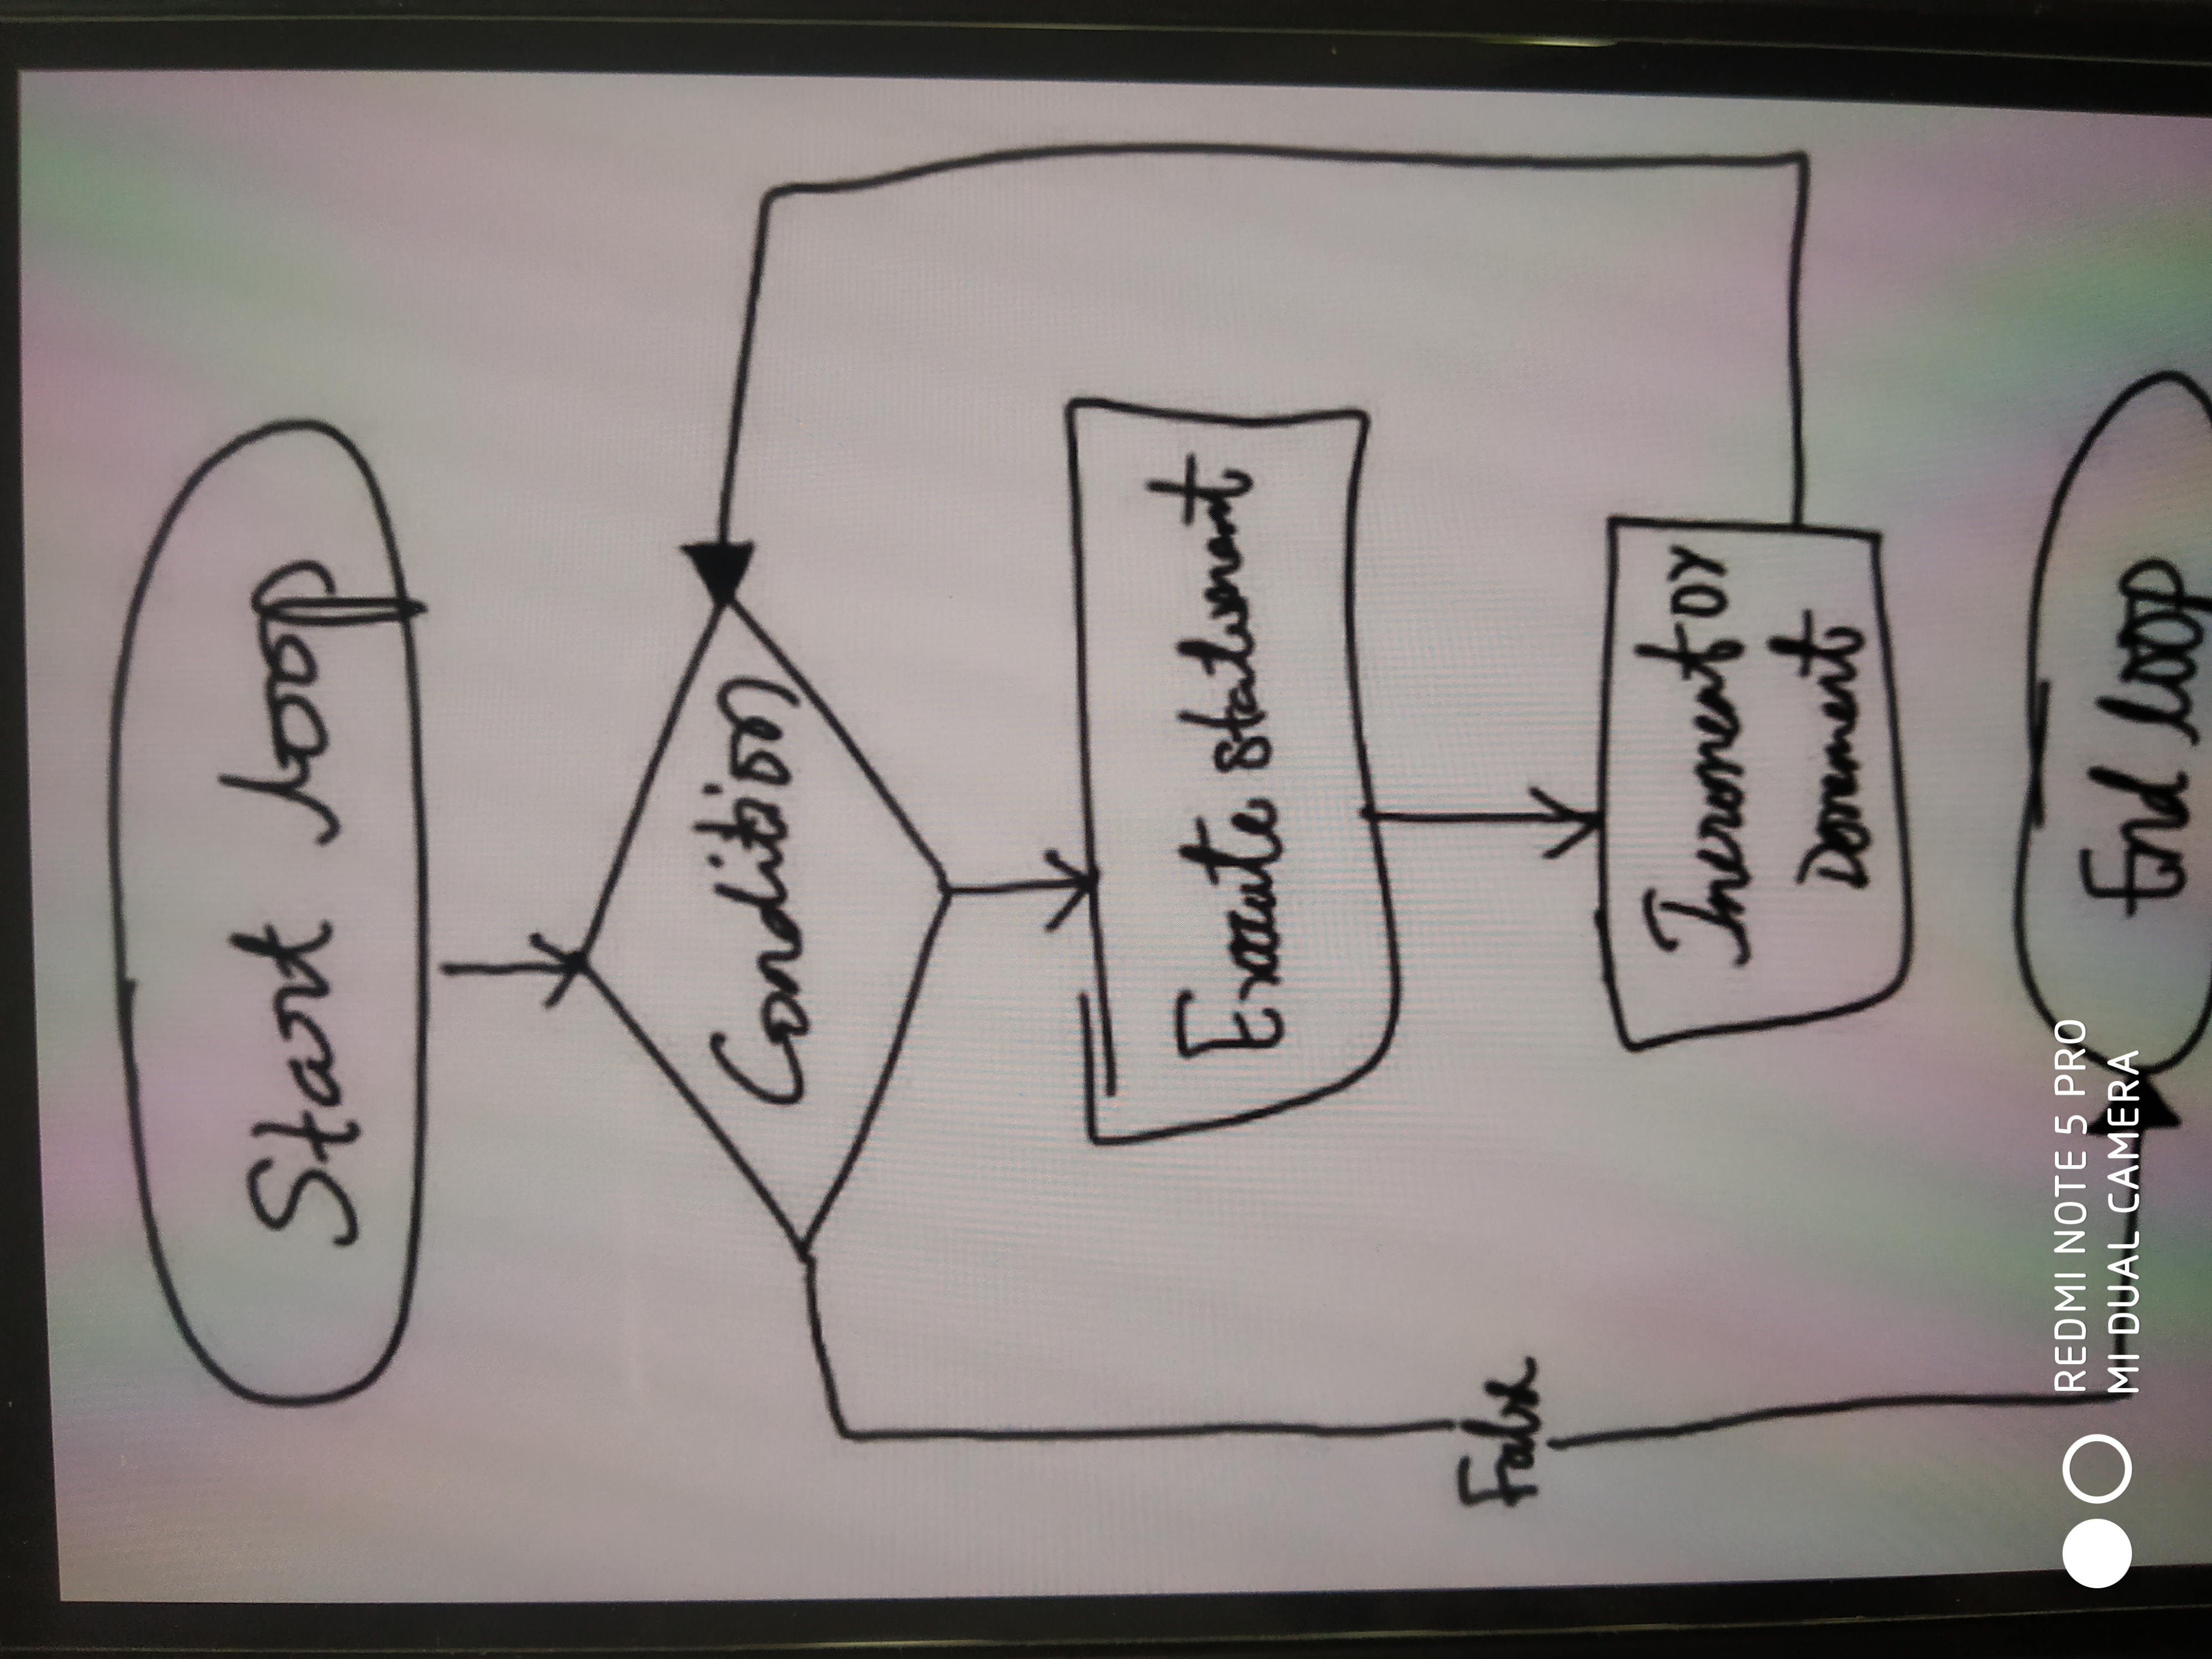 Start loop
Condition
Execute statement
False
Increment or
Decrement
End loop
REDMI NOTE 5 PRO
MI DUAL CAMERA